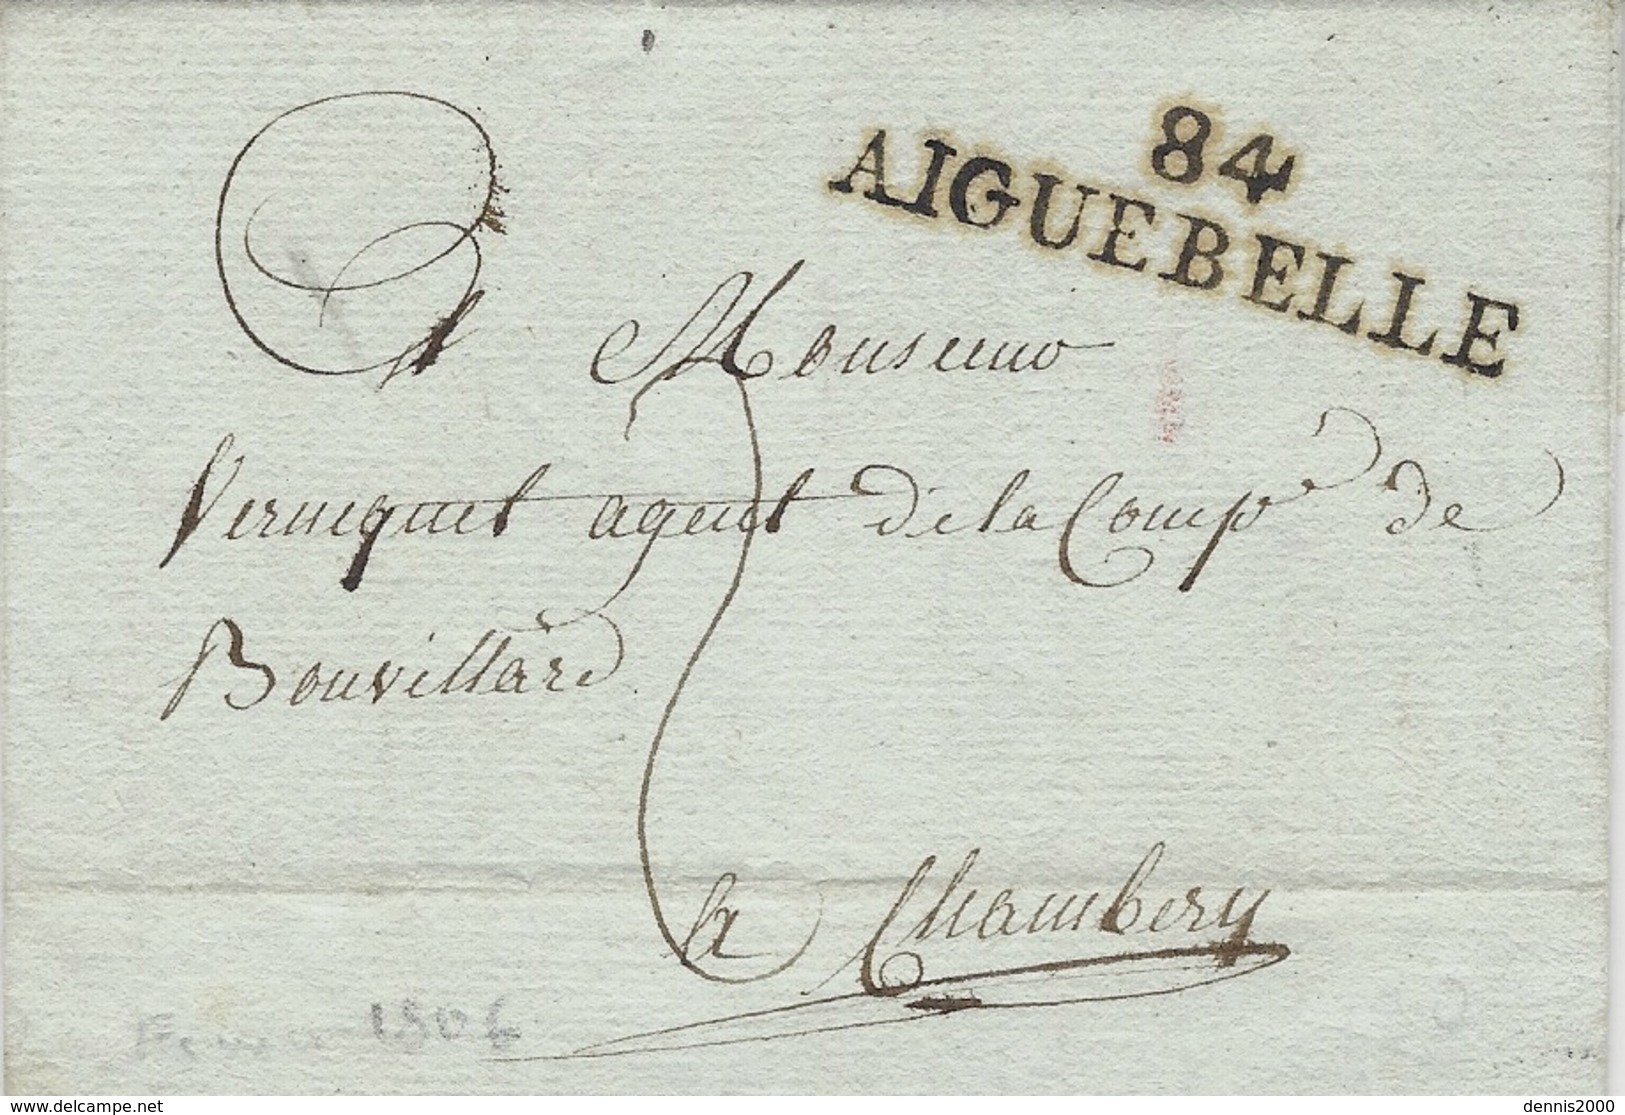 84
AIGUEBELLE
A Monsieur
Vernequet agent de la Comp^e de
Bouvillard
a Chambery
1806
www.delcampe.net
dennis2000